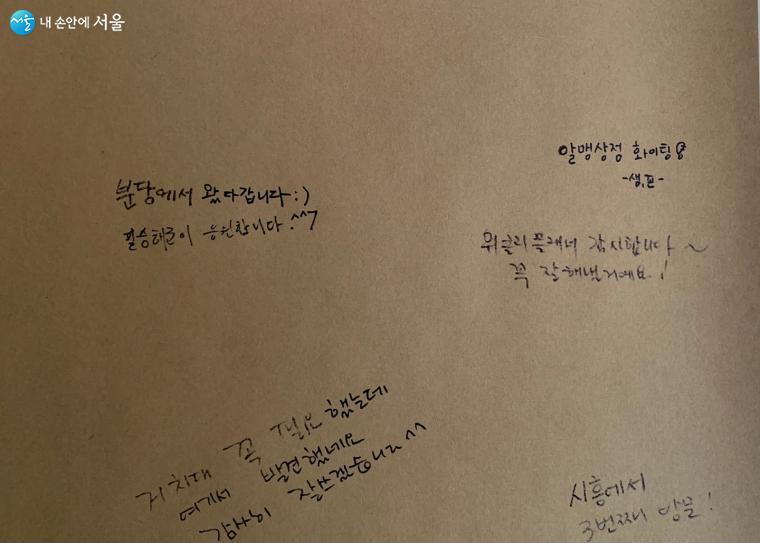 서울 내 손안에 서울
알맹상점 화이팅
-샘,표-
분당에서 왔다갑니다 :)
필승해군이 응원합니다.^^7
위클리플래너 감사합니다~
꼭 잘해낼거예요!
거치대 꼭 필요했는데
여기서 발견했네요
감사히 잘쓰겠습니다^^
시흥에서
3번째 방문!